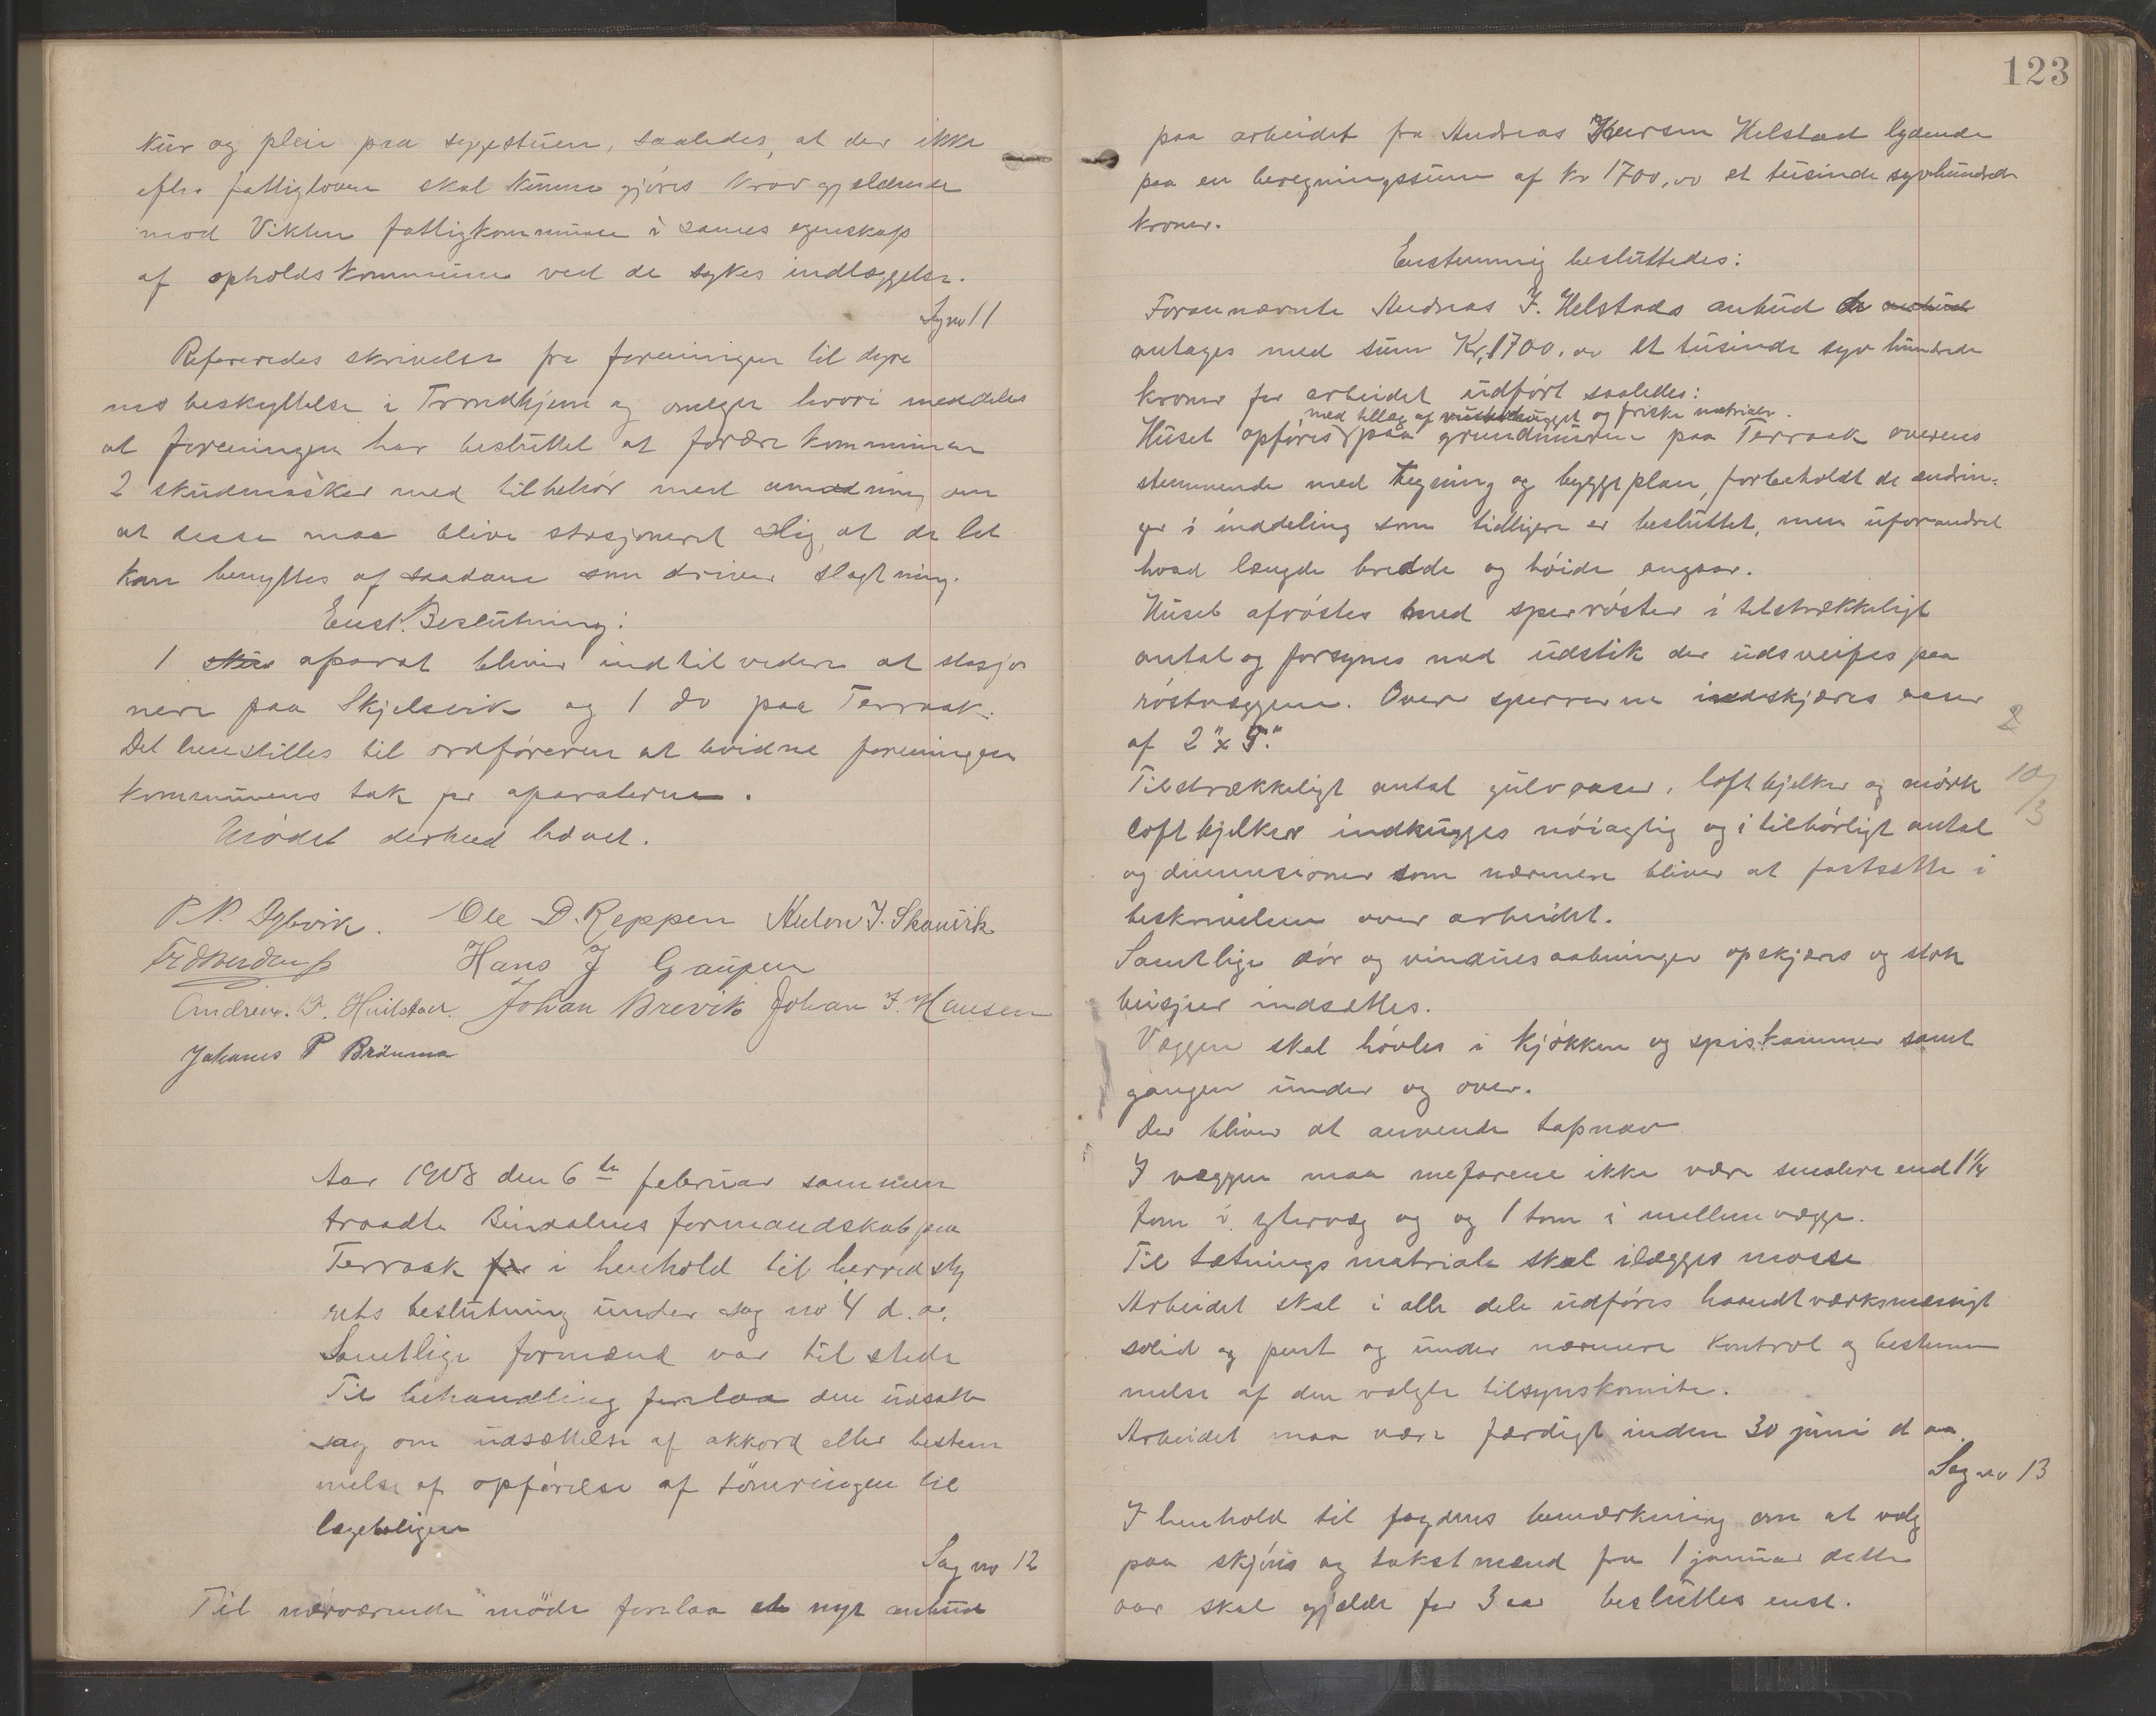 kur og pleie paa sygestuen, saaledes, at der ikke
efter fattigloven skal kunne gjøres krav gjeldende
mod Vikten fattigkommune i sames egenskap
af opholdskommune ved de sykes indlæggelse.
Sag no 11
Refereredes skrivelse fra foreningen til dyre
nes beskyttelse i Trondhjem og omegn hvori meddeles
at foreningen har besluttet at forære kommunen
2 skudmasker med tilbehør med anmodning om
at disse maa blive stasjoneret slig, at de let
kan benyttes af saadane som driver slagtning.
Enst. Beslutning:
1 aparat bliver indtil videre at stasjo
nere paa Skjelsvik og 1 do paa Terraak.
Det henstilles til ordføreren at bevidne foreningen
kommunens tak for aparaterne.
Mødet dermed hævet.
P. P. Dybvik. Ole D. Reppen Anton J. Skauvik
Hans J Gaupen
Andreas. F. Heilstad. Johan Brevik Johan F. Hansen
Johanes P Brönmo
Aar 1908 den 6te februar sammen
traadte Bindalens formandskab paa
Terraak for i henhold til herredsty
rets beslutning under sag no 4 d. a.
Samtlige formænd var tilstede
Til behandling forelaa den udsatte
sag om udsættelse af akkord eller bestem
melse af opførelse af tömringen til
lægeboligen
Sag no 12
Til nærværende möde forelaa et nyt anbud
123
paa arbeidet fra Andreas Helstad lydende
paa en beregningssum af kr 1700,00 et tusinde syvhundrede
kroner.
Enstemmig besluttedes:
Forannævnte Andreas J. Helstads anbud de anbud
antages med sum Kr, 1700.00 et tusinde syv hundrede
kroner for arbeidet udført saaledes:
med tillæg af og friske matrialer.
Huset opføres paa grundmuren paa Terraak overens
stemmende med tegning og byggeplan, forbeholdt de endrin-
ger i inddeling som tidligere er besluttet, men uforandret
hvad længde bredde og höide angaar.
Huset afröstes med sperröster i telstrækkeligt
antal og forsynes med udstik der udsveifes paa
röstvæggene. Over sperrerne indskjæres aaser
af 2"x 5".
2
Tilstrækkeligt antal gulvaaser, loftbjelker og mörk
10/3
loftbjelker indhugges nöiagtig og i tilbörligt antal
og dimensioner som nærmere bliver at fastsætte i
beskrivelsen over arbeidet.
Samtlige dör og vinduesaabninger opskjæres og stok
beisjer indsættes.
Væggen skal hövles i kjökken og spiskammer samt
gangen under og over.
Der bliver at anvende tapnav
I væggen maa mefarene ikke være smalere end 1 1/4
tom i ytervæg og og 1 tom i mellemvægge.
Til tætnings matriale skal ilægges mosse
Arbeidet skal i alle dele udføres haandtværksmæssigt
solid og pent og under nærmere kontrol og bestem
melse af den valgte tilsynskomite.
Arbeidet maa være færdigt inden 30 juni d aa.
Sag no 13
I henhold til fogdens bemærkning om at valg
paa skjøns og takstmænd fra 1 januar dette
aar skal gjelde for 3 aar besluttes enst.